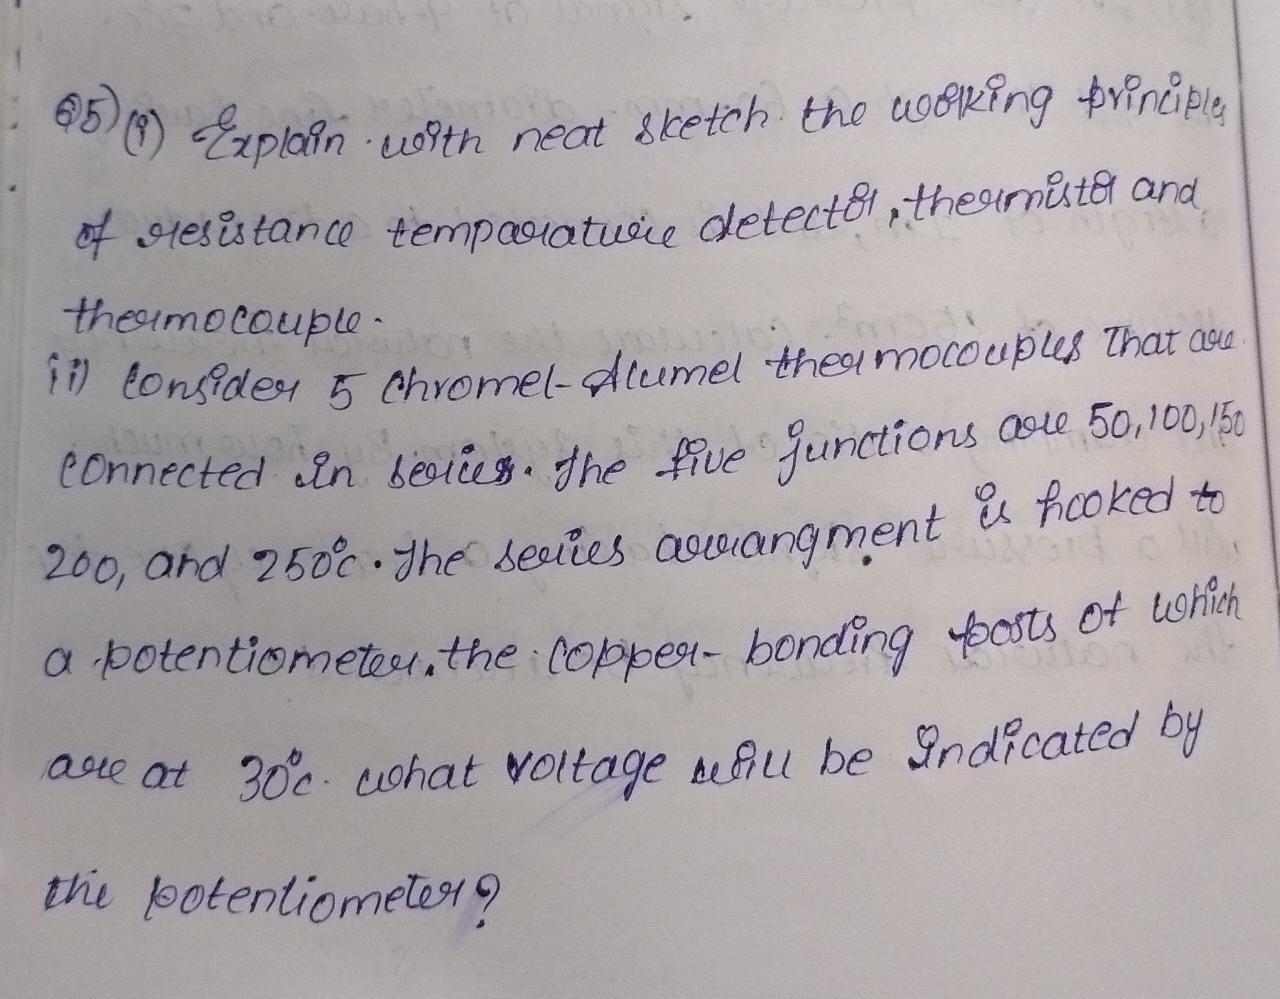 Q5) (i) Explain with neat sketch the working principles
of resistance temparature detector, thermistor and
thermocouple.
ii) Consider 5 Chromel-Alumel thermocouples That are
connected in series. The five junctions are 50, 100, 150
200, and 250°c. The series arrangment is hooked to
a potentiometer. the copper-bonding posts of which
are at 30°c. what voltage will be indicated by
the potentiometer?